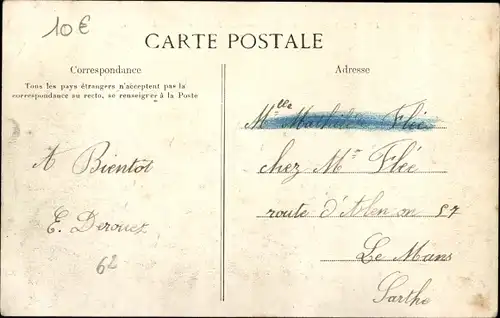 10€
CARTE POSTALE
Correspondance
Tous les pays étrangers n'acceptent pas la
correspondance au recto, se renseigner à la Poste
A Bientot
E. Derouet
62
Adresse
Melle Mathilde Flée
chez Mr Flée
route d'Alençon 57
Le Mans
Sarthe